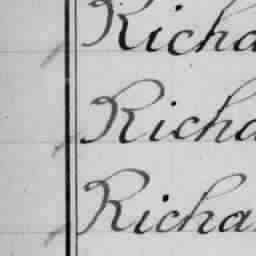 Richa
Richa
Richar